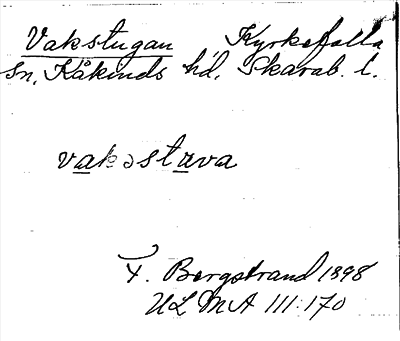 Vakstugan Kyrkefalla
Sn, Kåkinds hd, Skarab. l.
vakəstuva
F. Bergstrand 1898
ULMA 111:170